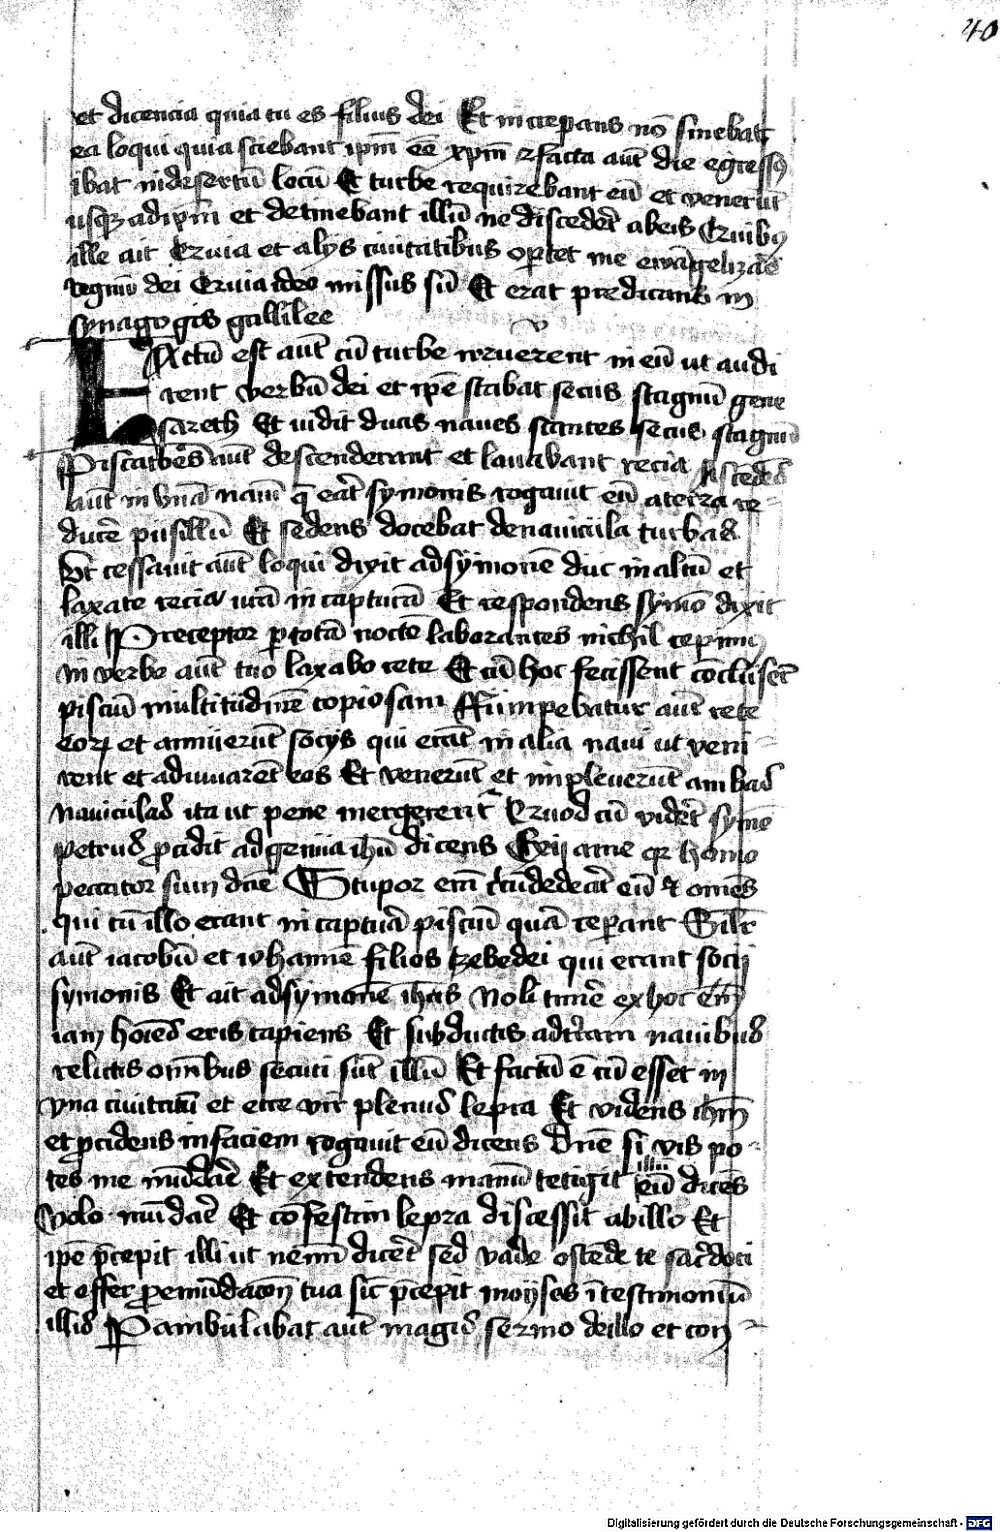 40
et dicencia quia tu es filius dei Et increpans nō sinebat
ea loqui quia sciebant ip̄m eē xp̄m facta aut̄ die egressꝰ
ibat in desertū locū Et turbe requirebant eū et venerūt
usqꝫ ad ip̄m et detinebant illū ne discederet̄ ab eis Quibꝰ
ille ait Quia et alijs ciuitatibus oportet me ewāgelizare
regnū dei Quia ideo missus sū Et erat predicans in
synagogis gallilee
v
Factū est aut̄ cū turbe irruerent in eū ut audi
rent verbū dei et ip̄e stabat secus stagnū gene
sareth Et uidit duas naues stantes secus stagnū
Piscatores aut̄ descenderant et lauabant recia Ascēdēs
aut̄ in vnā nauī q̄ erat̄ symonis rogauit eū a terra re
ducē pusillū Et sedens docebat de nauicula turbas
Vt cessauit aut̄ loqui dixit ad symonē duc in altū et
laxate recia urā in capturā Et respondens symō dixit
illi Preceptor p totā noctē laborantes nichil cepimꝰ
in verbo aut̄ tuo laxabo rete Et cū hoc fecissent cōcluserūt
pisciū multitudinē copiosam Rumpebatur aut̄ rete
eoꝝ et annuerūt socijs qui erāt in alia naui ut veni
rent et adiuuarēt eos Et venerūt et impleuerūt ambas
nauiculas ita ut pene mergerent̄ Quod cū vider̄t symō
petrus p̄cidit ad genua ih̄u dicens Exij a me qr homo
peccator sum dn̄e Stupor em̄ circūdederāt eū et om̄es
qui cū illo erant in captura pisciū quā ceperant Silr
aut̄ iacobū et iohannē filios zebedei qui erant socij
symonis Et ait ad symonē ih̄us Noli timē ex hoc em̄
iam hoīes eris capiens Et subductis ad t̄ram nauibus
relictis om̄ibus secuti sūt illū Et factū ē cū esset in
vna ciuitatū et ecce vir plenus lepra Et videns ih̄m
et p̄cidens in faciem rogauit eū dicens Dn̄e si vis po
tes me mūdare Et extendens manū tetigit illū eū dicēs
Volo mūdare Et cōfestim lepra discessit ab illo Et
ip̄e p̄cepit illi ut nēmī dicēt sed vade ostēde te sac̄doti
et offer p̄ emūdacōn̄ tua sic̄ p̄cepit moyses ī testimoniū
illis Pambulabat aut̄ magis sermo de illo et con
Digitalisierung gefördert durch die Deutsche Forschungsgemeinschaft - DFG